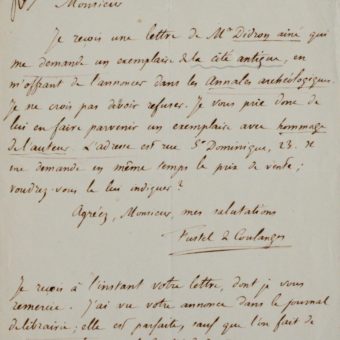 Monsieur
Je reçois une lettre de Mr Didron aîné qui
me demande un exemplaire de la cité antique, en
m'offrant de l'annoncer dans les Annales archéologiques.
Je ne crois pas devoir refuser. Je vous prie donc de
lui en faire parvenir un exemplaire avec hommage
de l'auteur. L'adresse est rue St Dominique, 23. Il
me demande en même temps le prix de vente ;
voudrez-vous le lui indiquer ?
Agréez, Monsieur, mes salutations
Fustel de Coulanges
Je reçois à l'instant votre lettre, dont je vous
remercie. J'ai vu votre annonce dans le journal
de librairie ; elle est parfaite, sauf que l'on fait de